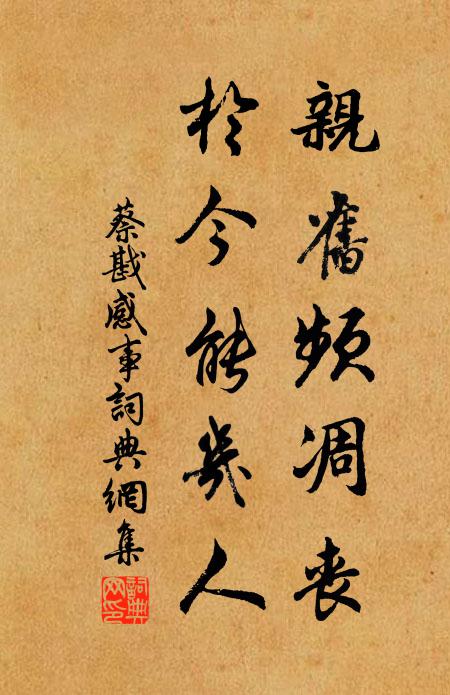 親舊頻凋喪
於今能幾人
蔡戡感事詞典網集
詞典網印